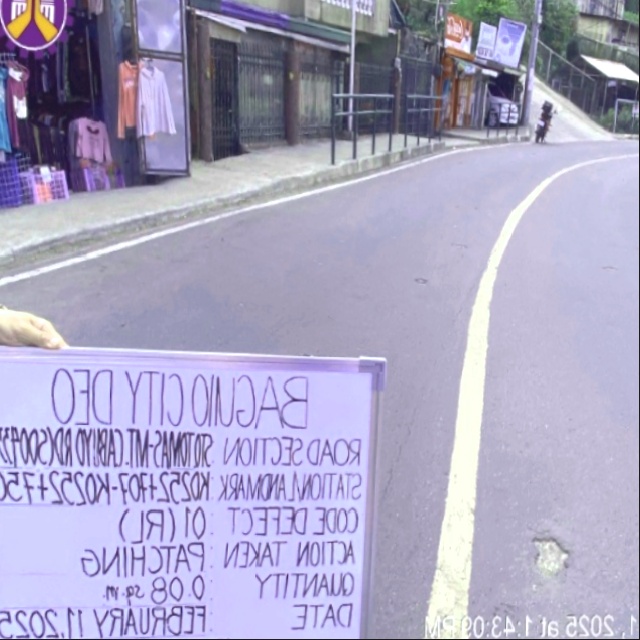 BAGUIO CITY DEO
ROAD SECTION : STO.TOMAS-MT.CABUYO RD
STATION/LANDMARK : K0252+107-K0252+750
CODE DEFECT : 01 (RL)
ACTION TAKEN : PATCHING
QUANTITY : 0.08 sq.m
DATE : FEBRUARY 11, 2025
1, 2025 at 1:43:09 PM